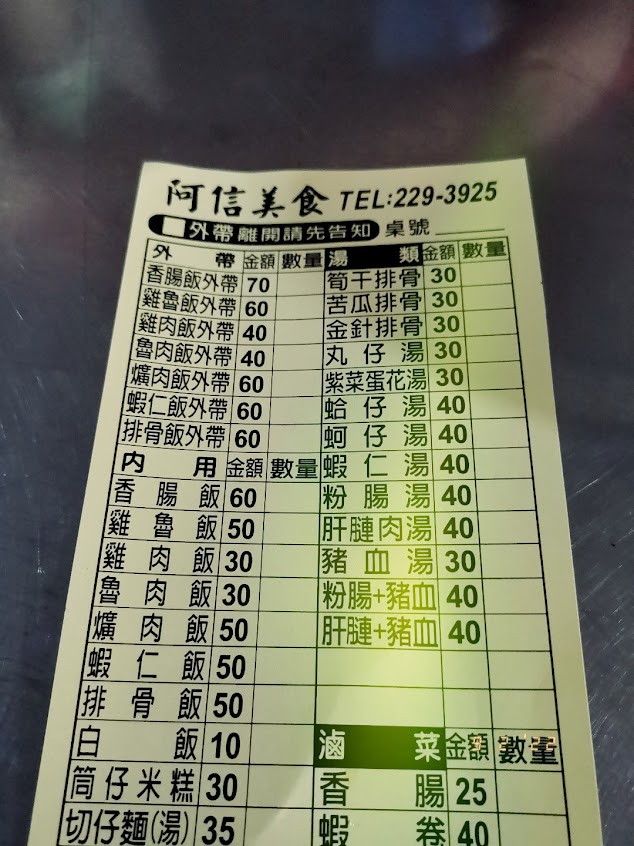 阿信美食 TEL:229-3925
外帶 離開請先告知 桌號
外帶 金額 數量 湯類 金額 數量
香腸飯外帶 70 筍干排骨 30
雞魯飯外帶 60 苦瓜排骨 30
雞肉飯外帶 40 金針排骨 30
魯肉飯外帶 40 丸仔湯 30
爌肉飯外帶 60 紫菜蛋花湯 30
蝦仁飯外帶 60 蛤仔湯 40
排骨飯外帶 60 蚵仔湯 40
内用 金額 數量 蝦仁湯 40
香腸飯 60 粉腸湯 40
雞魯飯 50 肝腱肉湯 40
雞肉飯 30 豬血湯 30
魯肉飯 30 粉腸+豬血 40
爌肉飯 50 肝腱+豬血 40
蝦仁飯 50
排骨飯 50
白飯 10 滷菜 金額 數量
筒仔米糕 30 香腸 25
切仔麵(湯) 35 蝦卷 40